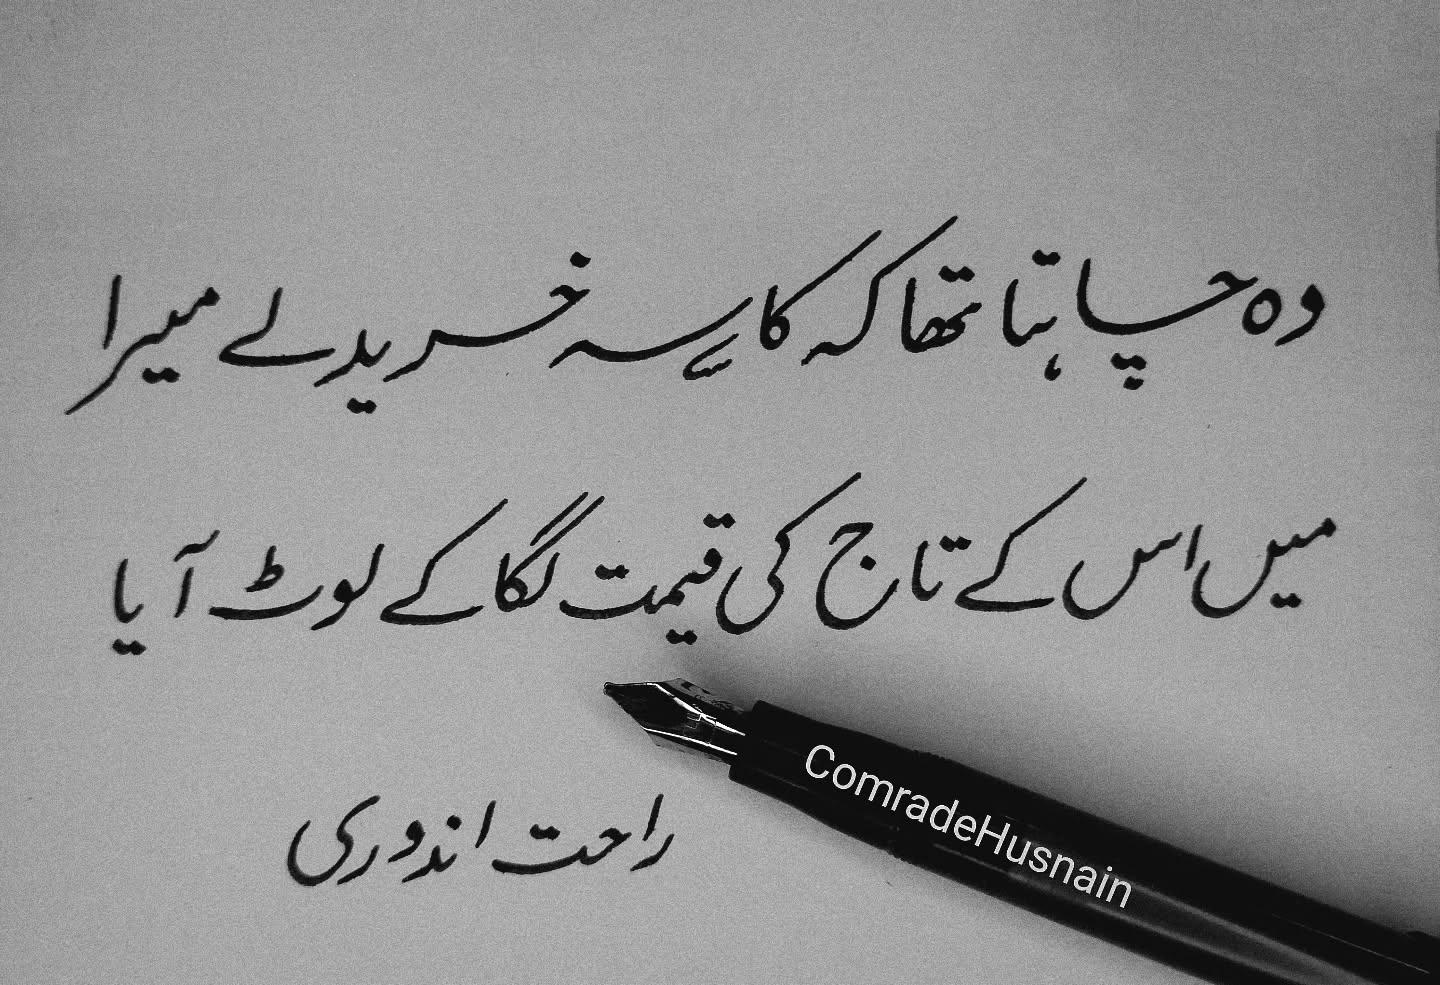 وہ چاہتا تھا کہ کاسہ خرید لے میرا
میں اس کے تاج کی قیمت لگا کے لوٹ آیا
راحت اندوری
ComradeHusnain